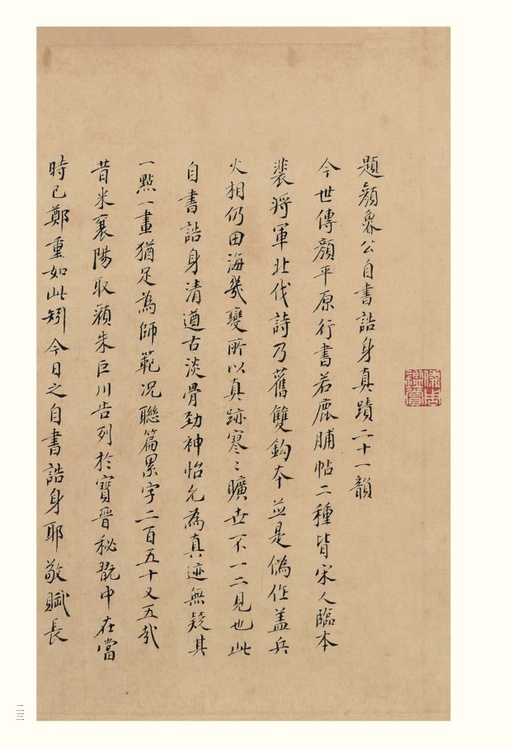 題顏魯公自書誥身真蹟二十一韻
今世傳顏平原行書若鹿脯帖二種皆宋人臨本
裴將軍北伐詩乃舊雙鉤本並是偽作蓋兵
火相仍田海幾變所以真跡寥〻曠世不一二見也此
自書誥身清遒古淡骨勁神怡允為真迹無疑其
一點一畫猶足為師範況聯篇累字二百五十又五哉
昔米襄陽取顏朱巨川告列於寶晉秘翫中在當
時已鄭重如此矧今日之自書誥身耶敬賦長
二三